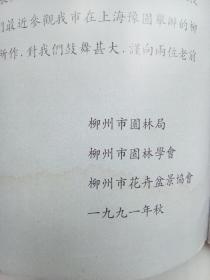 們最近參觀我市在上海豫園舉辦的柳
所作,對我們鼓舞甚大,謹向兩位老前
柳州市園林局
柳州市園林學會
柳州市花卉盆景協會
一九九一年秋